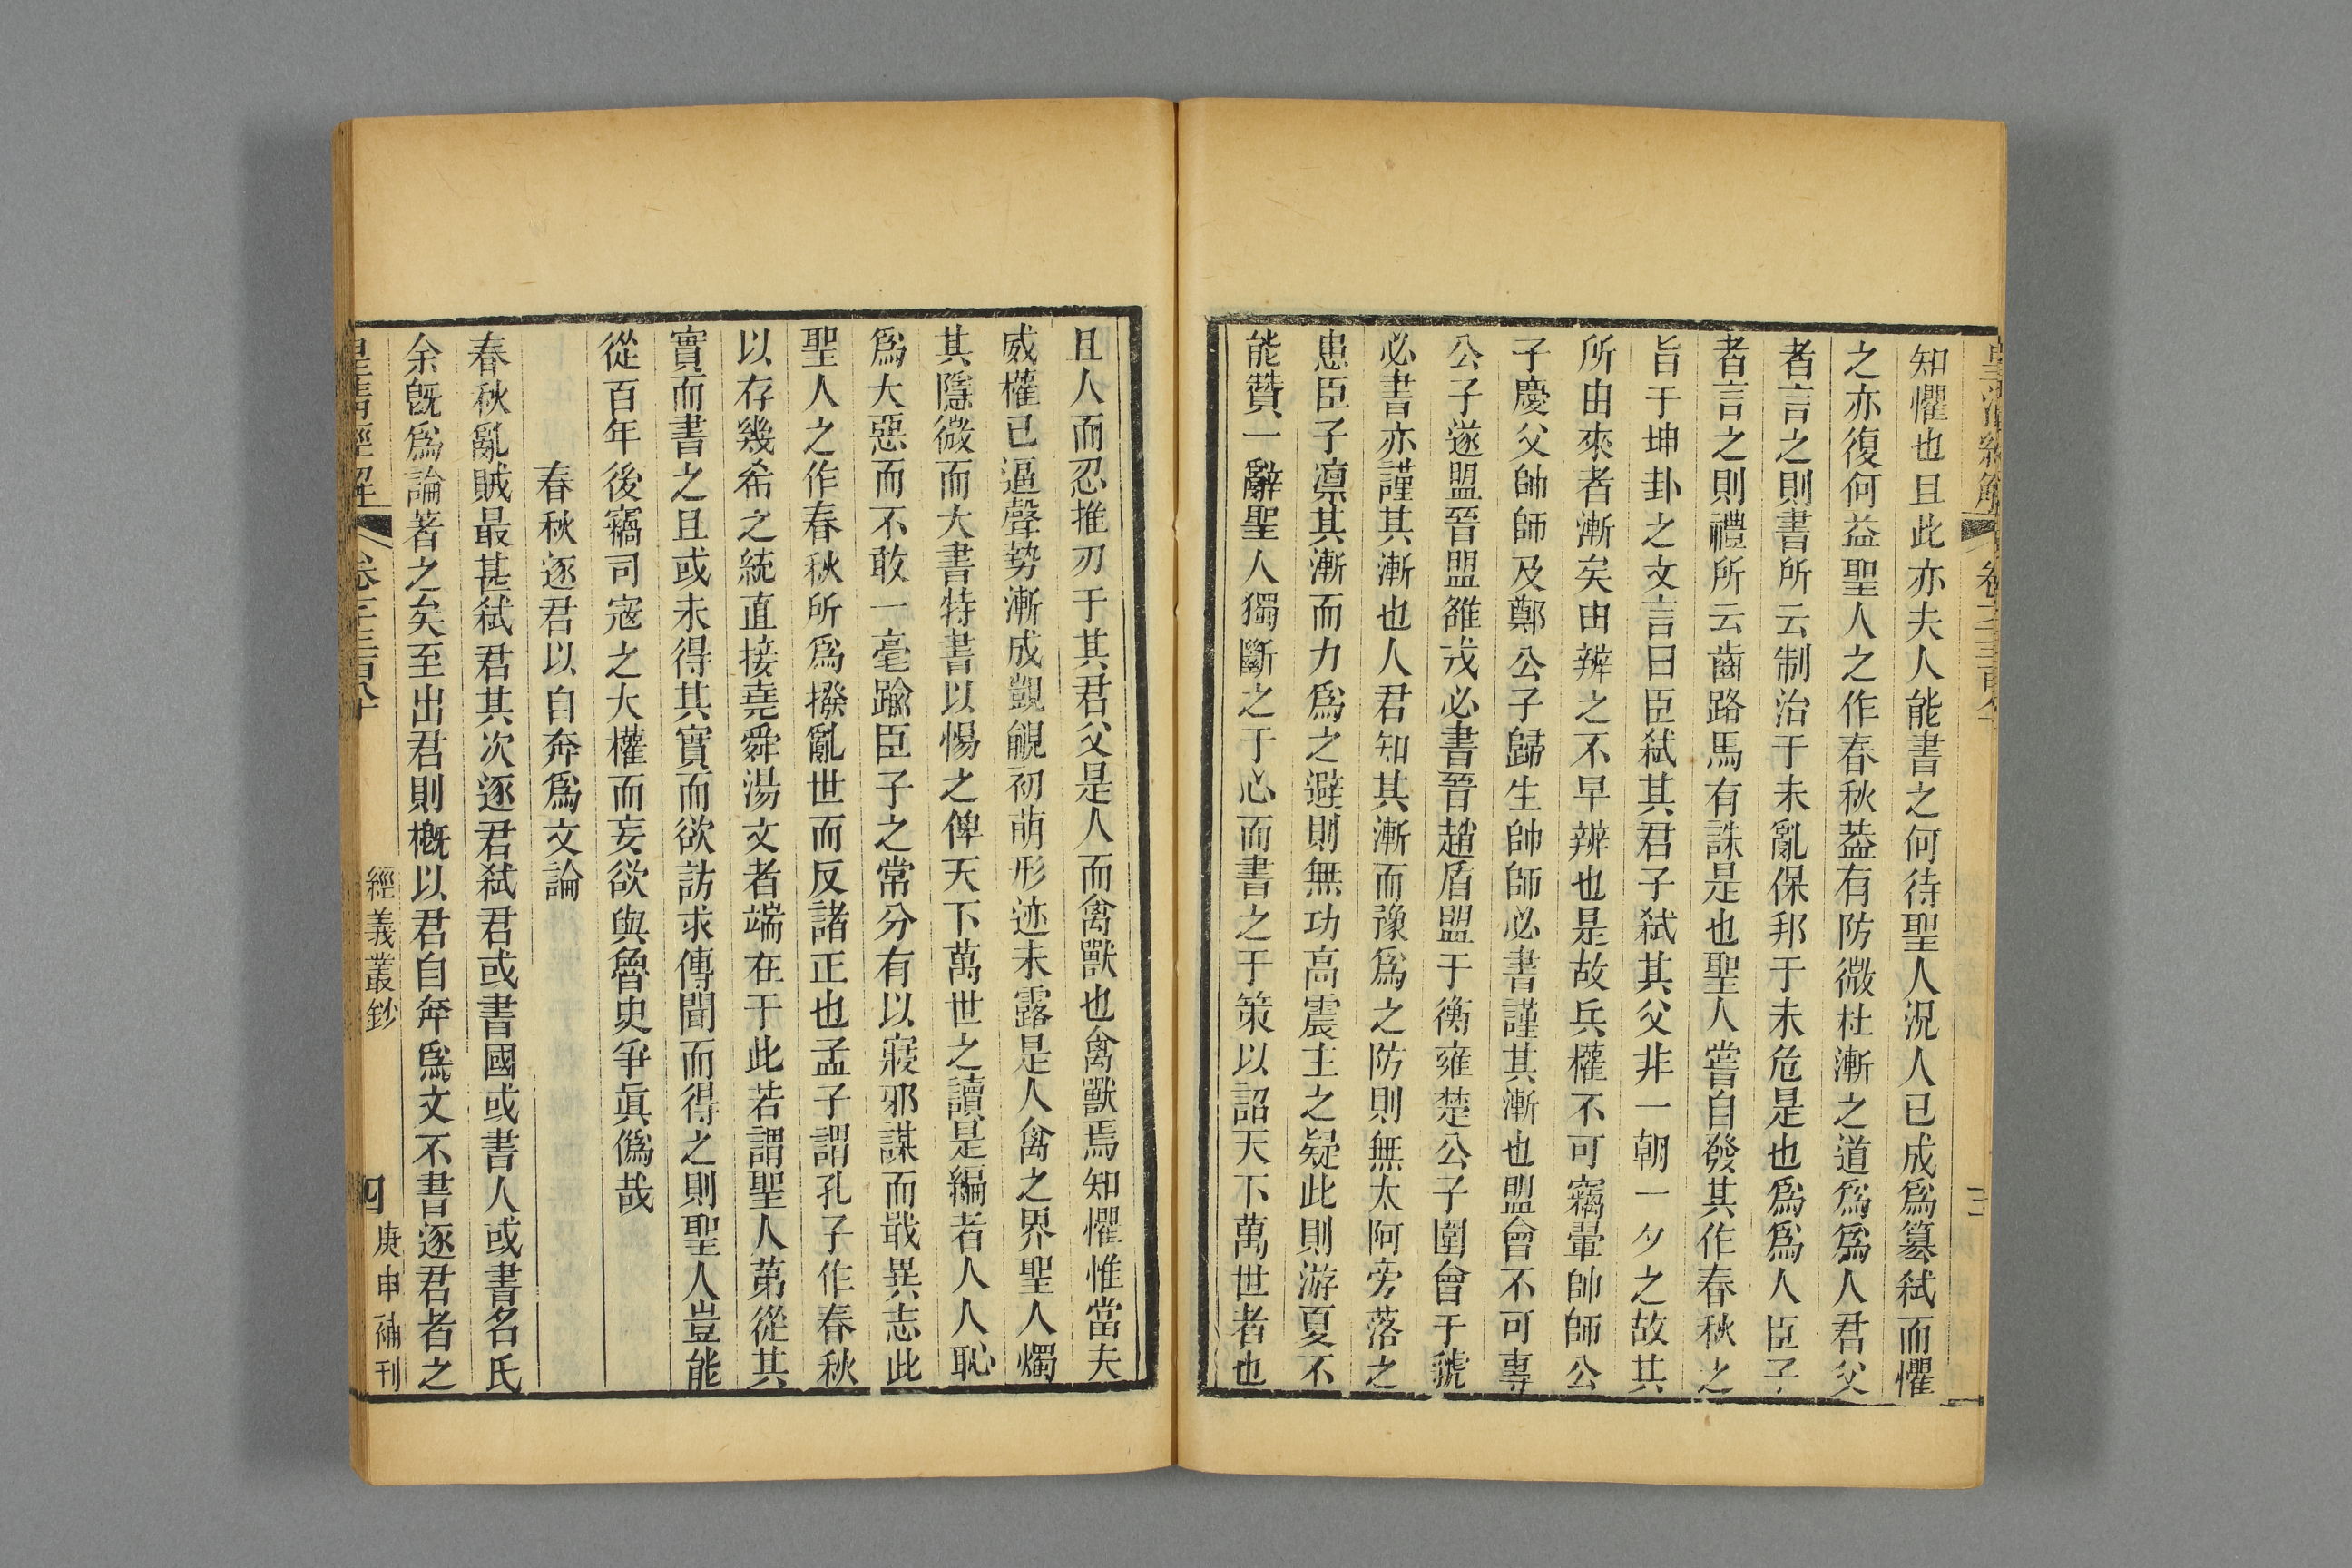 知懼也且此亦夫人能書之何待聖人況人已成爲篡弒而懼
之亦復何益聖人之作春秋葢有防微杜漸之道爲爲人君父
者言之則書所云制治于未亂保邦于未危是也爲爲人臣子
者言之則禮所云齒路馬有誅是也聖人嘗自發其作春秋之
旨于坤卦之文言曰臣弒其君子弒其父非一朝一夕之故其
所由來者漸矣由辨之不早辨也是故兵權不可竊暈帥師公
子慶父帥師及鄭公子歸生帥師必書謹其漸也盟會不可專
公子遂盟晉盟雒戎必書晉趙盾盟于衡雍楚公子圍會于虢
必書亦謹其漸也人君知其漸而豫爲之防則無太阿旁落之
患臣子凛其漸而力爲之避則無功高震主之疑此則游夏不
能贊一辭聖人獨斷之于心而書之于策以詔天下萬世者也
且人而忍推刃于其君父是人而禽獸也禽獸焉知懼惟當夫
威權已逼聲勢漸成覬覦初萌形迹未露是人禽之界聖人燭
其隱微而大書特書以惕之俾天下萬世之讀是編者人人恥
爲大惡而不敢一毫踰臣子之常分有以寢邪謀而戢異志此
聖人之作春秋所爲撥亂世而反諸正也孟子謂孔子作春秋
以存幾希之統直接堯舜湯文者端在于此若謂聖人第從其
實而書之且或未得其實而欲訪求傳聞而得之則聖人豈能
從百年後竊司寇之大權而妄欲與魯史爭眞僞哉
春秋逐君以自奔爲文論
春秋亂賊最甚弒君其次逐君弒君或書國或書人或書名氏
余旣爲論著之矣至出君則槪以君自奔爲文不書逐君者之
皇清經解
卷一千三百八十
經義叢鈔
四
庚申補刊